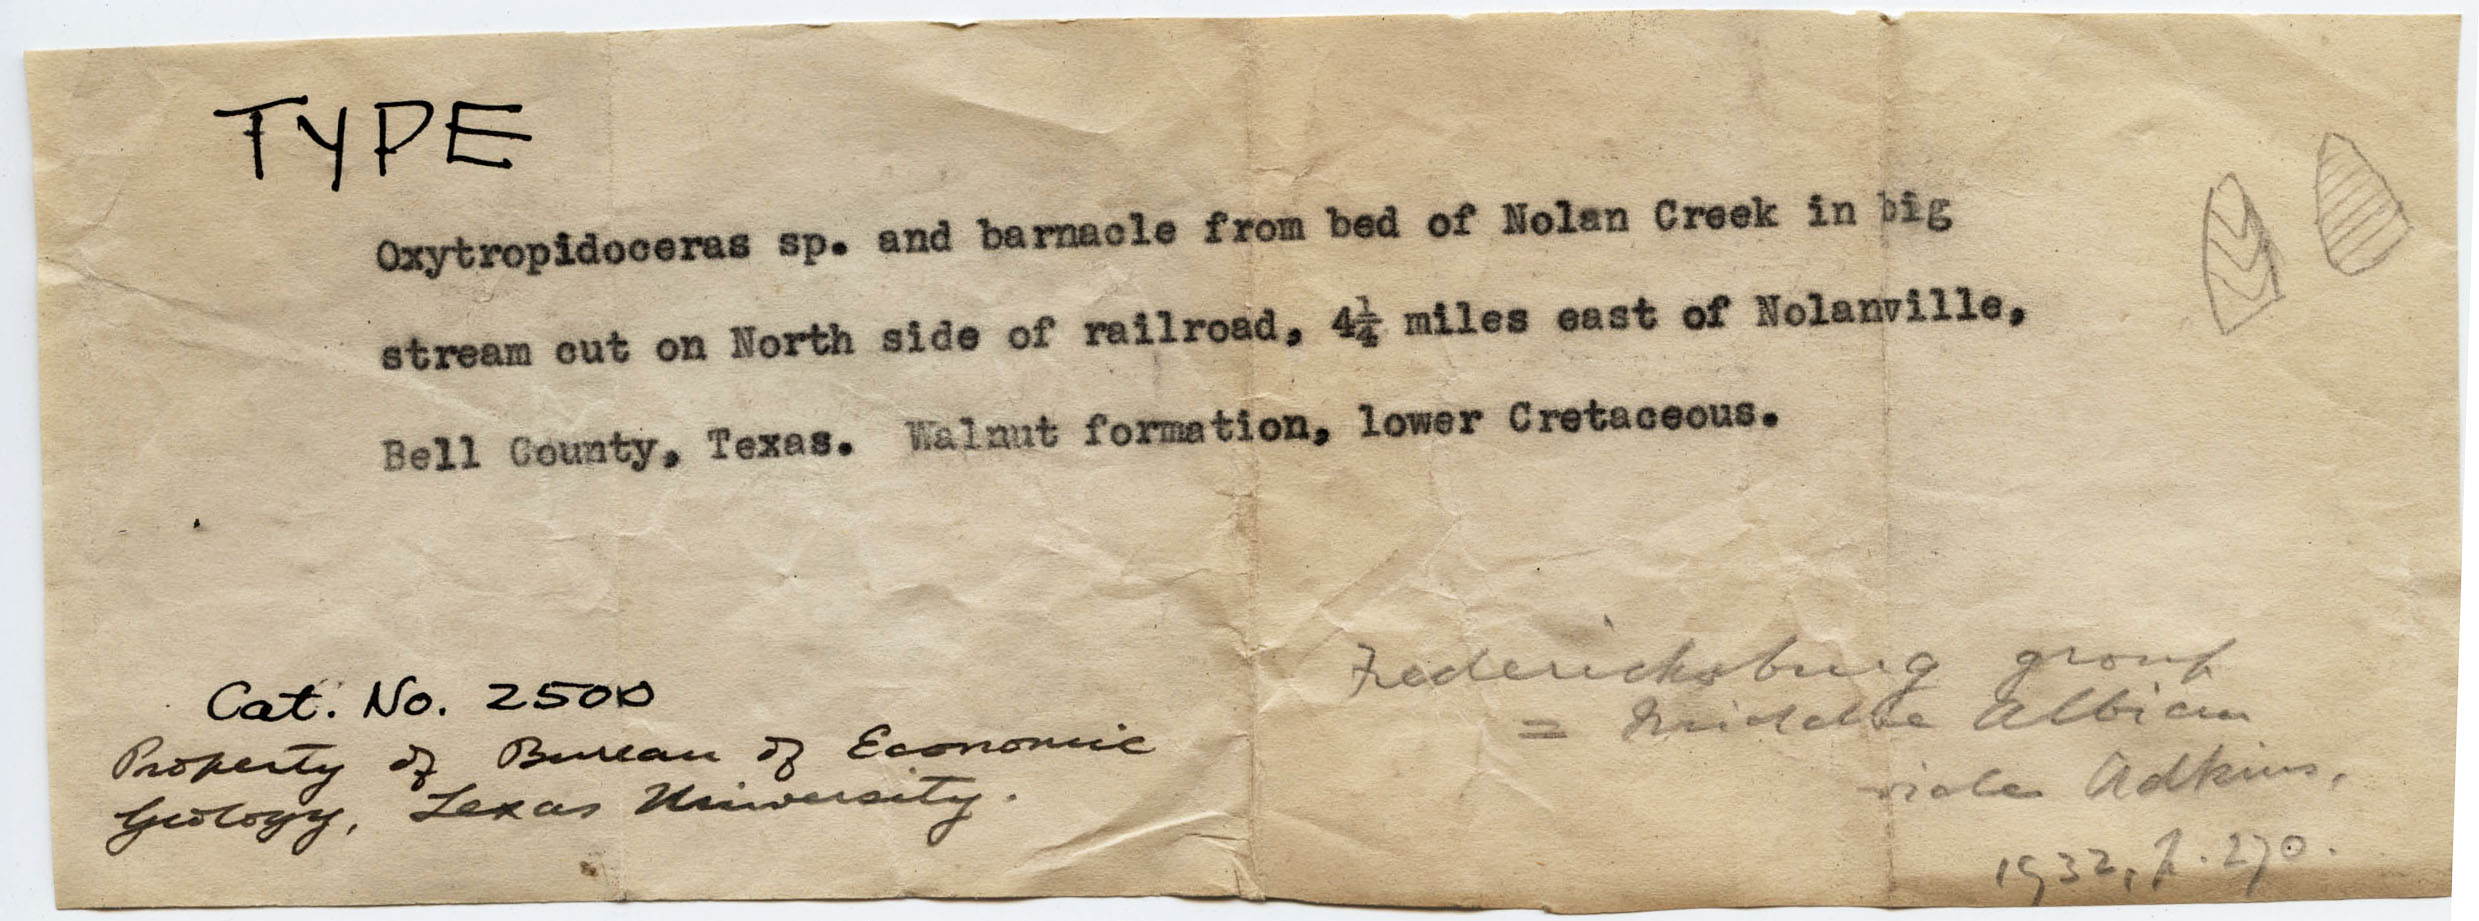 TYPE
Oxytropidoceras sp. and barnacle from bed of Nolan Creek in big
stream cut on North side of railroad, 4¼ miles east of Nolanville,
Bell County, Texas. Walnut formation, lower Cretaceous.
Cat. No. 2500
Property of Bureau of Economic
Geology, Texas University.
Fredericksburg group
= Middle Albian
vide Adkins,
1932, p. 270.